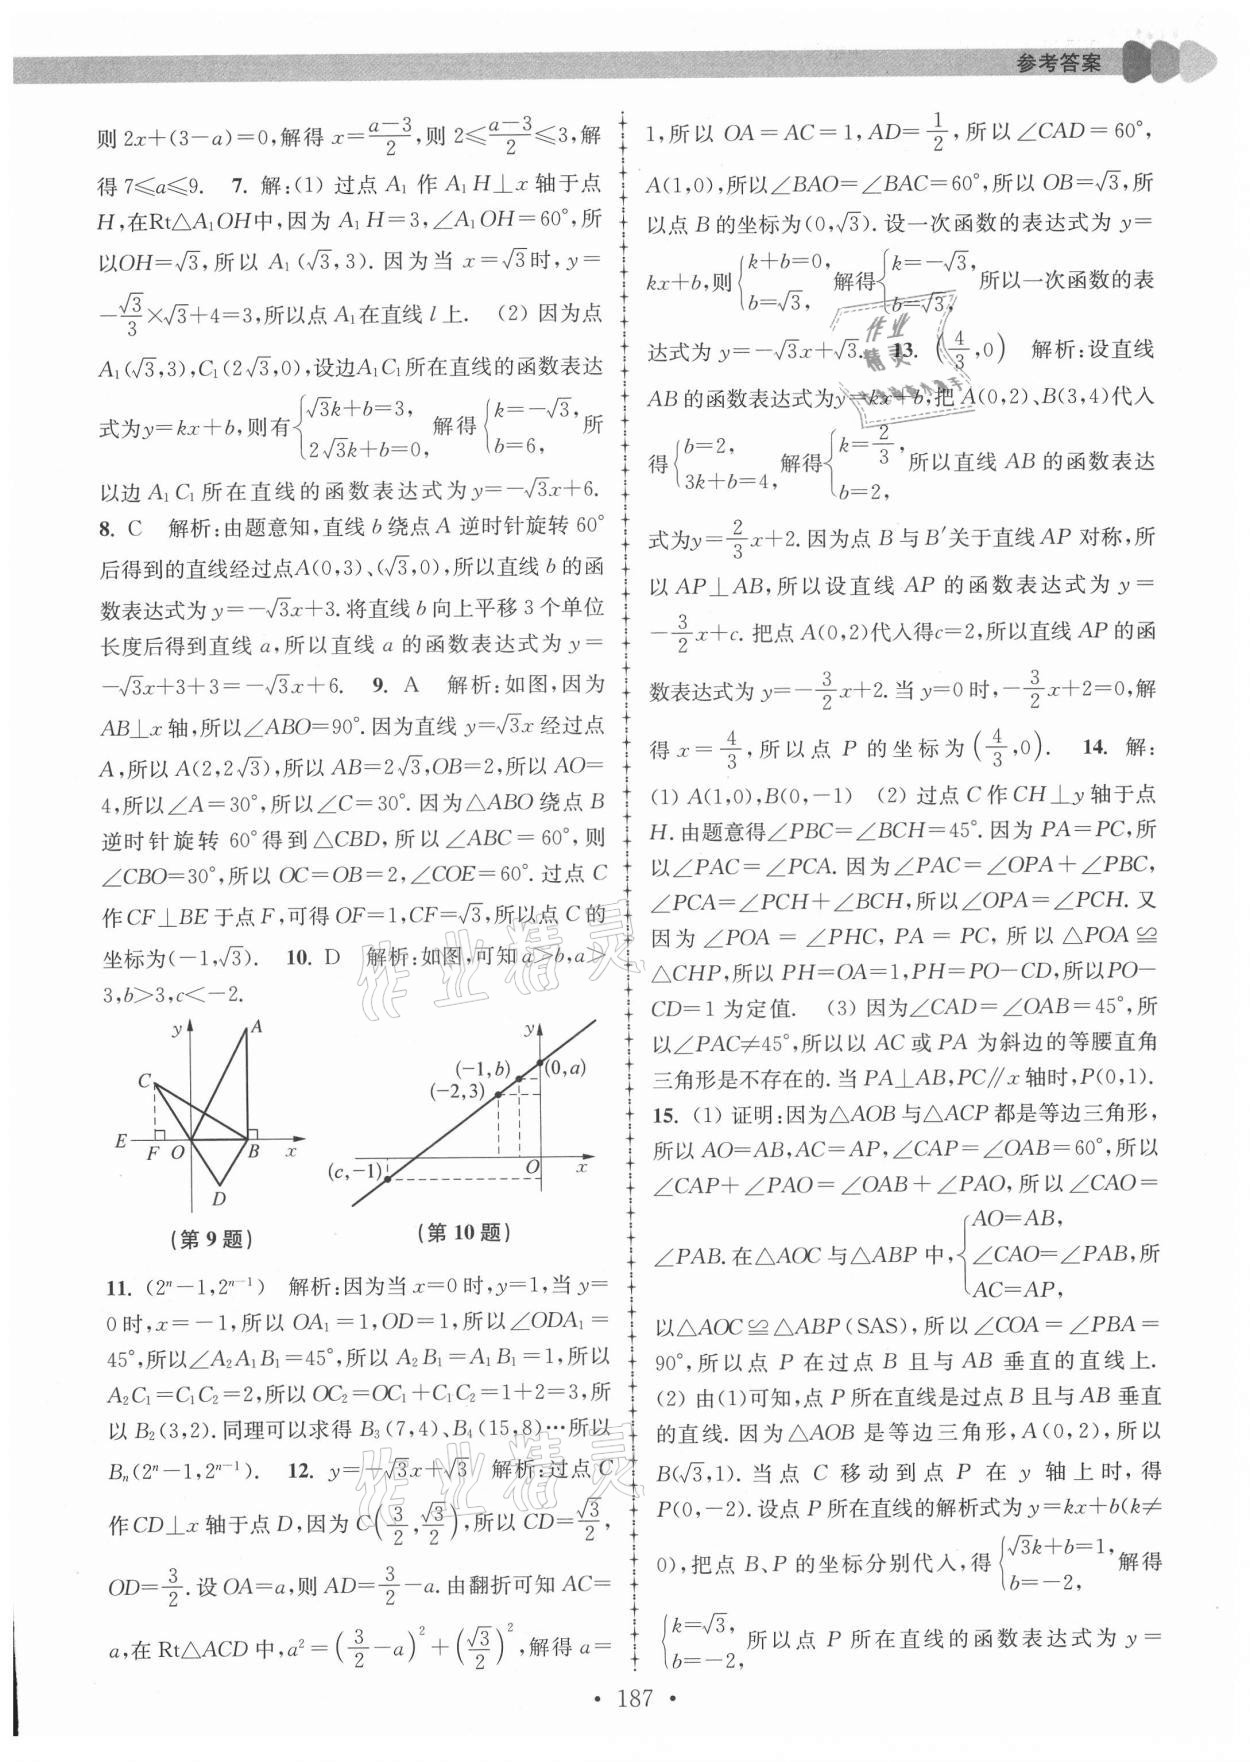 参考答案
则 2x+(3-a)=0,解得 x=\frac{a-3}{2},则 2≤\frac{a-3}{2}≤3,解
得 7≤a≤9. 7. 解:(1) 过点 A₁ 作 A₁H⊥x 轴于点
H,在Rt△A₁OH中,因为 A₁H=3,∠A₁OH=60°,所
以OH=√3,所以 A₁(√3,3).因为当 x=√3时,y=
-\frac{√3}{3}×√3+4=3,所以点 A₁在直线 l 上. (2) 因为点
A₁(√3,3),C₁(2√3,0),设边A₁C₁所在直线的函数表达
式为y=kx+b,则有{√3k+b=3, 2√3k+b=0, 解得{k=-√3, b=6, 所
以边 A₁C₁ 所在直线的函数表达式为 y=-√3x+6.
8. C 解析:由题意知,直线 b 绕点 A 逆时针旋转 60°
后得到的直线经过点A(0,3)、(√3,0),所以直线 b 的函
数表达式为 y=-√3x+3.将直线 b 向上平移 3 个单位
长度后得到直线 a,所以直线 a 的函数表达式为 y=
-√3x+3+3=-√3x+6. 9. A 解析:如图,因为
AB⊥x 轴,所以∠ABO=90°.因为直线 y=√3x 经过点
A,所以 A(2,2√3),所以 AB=2√3,OB=2,所以 AO=
4,所以∠A=30°,所以∠C=30°.因为△ABO 绕点 B
逆时针旋转 60°得到△CBD,所以∠ABC=60°,则
∠CBO=30°,所以 OC=OB=2,∠COE=60°.过点 C
作 CF⊥BE 于点 F,可得 OF=1,CF=√3,所以点 C 的
坐标为(-1,√3). 10. D 解析:如图,可知 a>b,a>
3,b>3,c<-2.
y
A
C
E
F
O
B
x
D
(第 9 题)
y
(-1,b)
(0,a)
(-2,3)
(c,-1)
O
x
(第 10 题)
11. (2ⁿ-1,2ⁿ⁻¹) 解析:因为当 x=0 时,y=1,当 y=
0 时,x=-1,所以 OA₁=1,OD=1,所以∠ODA₁=
45°,所以∠A₂A₁B₁=45°,所以 A₂B₁=A₁B₁=1,所以
A₂C₁=C₁C₂=2,所以 OC₂=OC₁+C₁C₂=1+2=3,所
以 B₂(3,2).同理可以求得 B₃(7,4)、B₄(15,8)…所以
Bₙ(2ⁿ-1,2ⁿ⁻¹). 12. y=-√3x+√3 解析:过点 C
作 CD⊥x 轴于点 D,因为 C(\frac{3}{2},\frac{√3}{2}),所以 CD=\frac{√3}{2},
OD=\frac{3}{2}.设 OA=a,则 AD=\frac{3}{2}-a.由翻折可知 AC=
a,在 Rt△ACD 中,a²=(\frac{3}{2}-a)²+(\frac{√3}{2})²,解得 a=
1,所以 OA=AC=1,AD=\frac{1}{2},所以∠CAD=60°,
A(1,0),所以∠BAO=∠BAC=60°,所以 OB=√3,所
以点 B 的坐标为(0,√3).设一次函数的表达式为 y=
kx+b,则{k+b=0, b=√3, 解得{k=-√3, b=√3, 所以一次函数的表
达式为 y=-√3x+√3. 13. (\frac{4}{3},0) 解析:设直线
AB 的函数表达式为y=kx+b,把 A(0,2)、B(3,4)代入
得{b=2, 3k+b=4, 解得{k=\frac{2}{3}, b=2, 所以直线 AB 的函数表达
式为y=\frac{2}{3}x+2.因为点 B 与 B′关于直线 AP 对称,所
以 AP⊥AB,所以设直线 AP 的函数表达式为 y=
-\frac{3}{2}x+c.把点 A(0,2)代入得c=2,所以直线 AP 的函
数表达式为 y=-\frac{3}{2}x+2.当 y=0 时,-\frac{3}{2}x+2=0,解
得 x=\frac{4}{3},所以点 P 的坐标为(\frac{4}{3},0). 14. 解:
(1) A(1,0),B(0,-1) (2) 过点 C 作 CH⊥y 轴于点
H.由题意得∠PBC=∠BCH=45°.因为 PA=PC,所
以∠PAC=∠PCA.因为∠PAC=∠OPA+∠PBC,
∠PCA=∠PCH+∠BCH,所以∠OPA=∠PCH.又
因为∠POA=∠PHC,PA=PC,所以△POA≌
△CHP,所以 PH=OA=1,PH=PO-CD,所以PO-
CD=1 为定值. (3) 因为∠CAD=∠OAB=45°,所
以∠PAC≠45°,所以以 AC 或 PA 为斜边的等腰直角
三角形是不存在的.当 PA⊥AB,PC∥x 轴时,P(0,1).
15. (1) 证明:因为△AOB 与△ACP 都是等边三角形,
所以 AO=AB,AC=AP,∠CAP=∠OAB=60°,所以
∠CAP+∠PAO=∠OAB+∠PAO,所以∠CAO=
∠PAB.在△AOC 与△ABP 中,{AO=AB, ∠CAO=∠PAB, AC=AP, 所
以△AOC≌△ABP(SAS),所以∠COA=∠PBA=
90°,所以点 P 在过点 B 且与 AB 垂直的直线上.
(2) 由(1)可知,点 P 所在直线是过点 B 且与 AB 垂直
的直线.因为△AOB 是等边三角形,A(0,2),所以
B(√3,1).当点 C 移动到点 P 在 y 轴上时,得
P(0,-2).设点 P 所在直线的解析式为 y=kx+b(k≠
0),把点 B、P 的坐标分别代入,得{√3k+b=1, b=-2, 解得
{k=√3, b=-2, 所以点 P 所在直线的函数表达式为 y=
• 187 •
作业精灵
作业精灵
作业
精灵